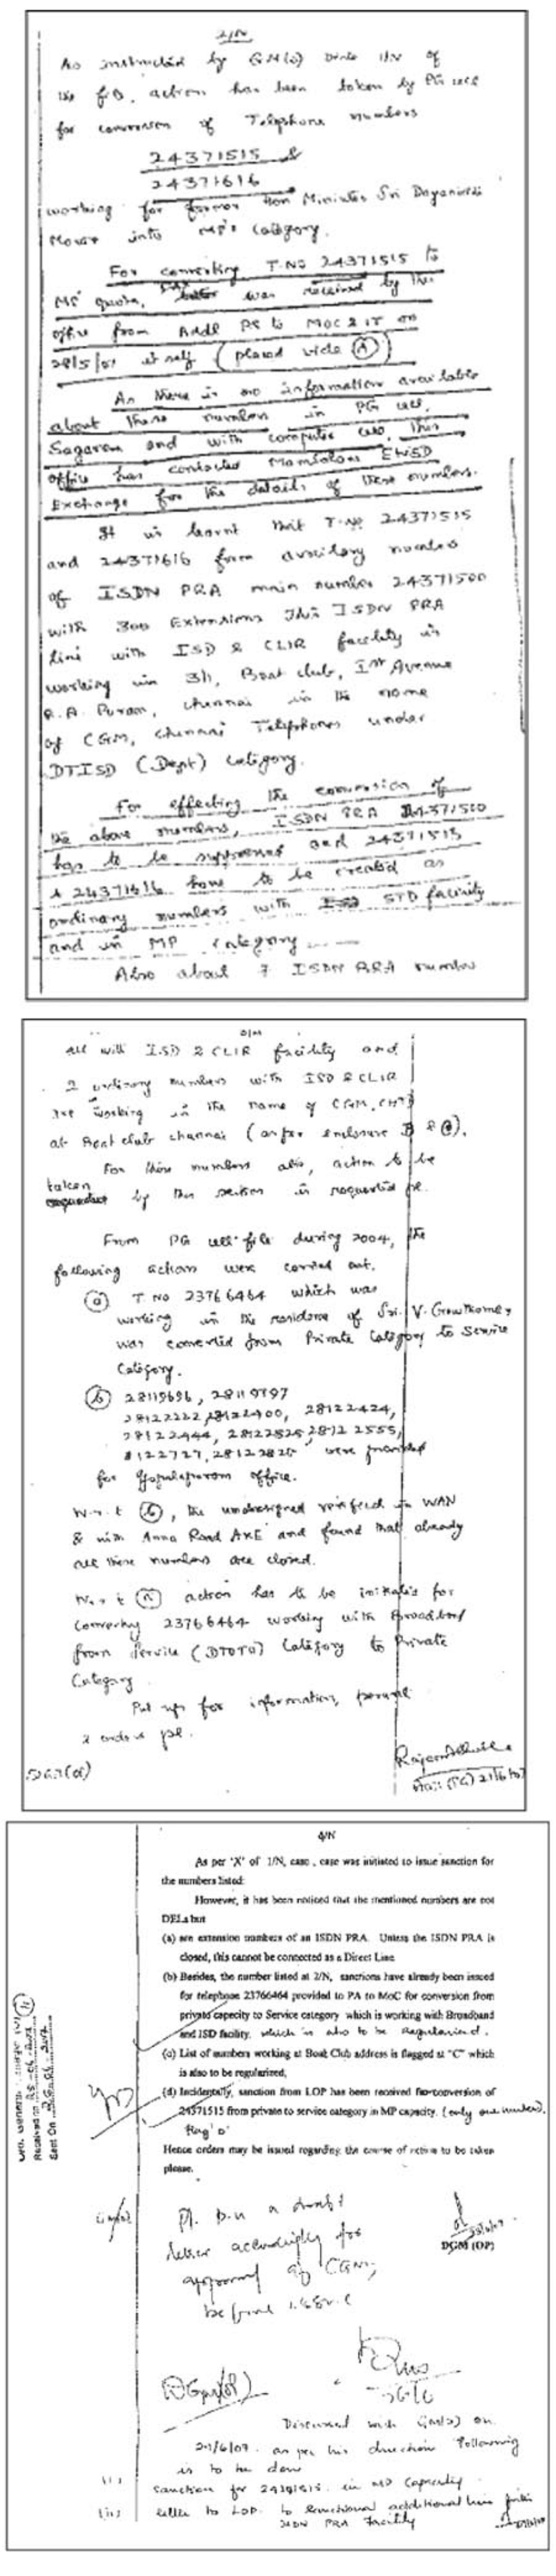 2/N
As instructed by GM(O) vide 1/N of
the file, action has been taken by PG cell
for conversion of Telephone numbers
24371515 &
24371616
working for former Hon Minister Sri Dayanidhi
Maran into MP's Category.
For converting T.NO 24371515 to
MP quota, FAX was received by this
office from Addl PS to MOC & IT on
28/5/07 itself (placed vide A)
As there is no information available
about these numbers in PG cell,
Sagaram and with computer cell, this
office has contacted Mambalam EWSD
Exchange for the details of these numbers.
It is learnt that T.No 24371515
and 24371616 form auxilary numbers
of ISDN PRA main number 24371500
with 300 Extensions This ISDN PRA
line with ISD & CLIR facility is
working in 3/1, Boat club, Ist Avenue
R.A. Puram, Chennai in the name
of CGM, Chennai Telephones under
DTISD (Dept) category.
For effecting the conversion of
the above numbers, ISDN PRA 24371500
has to be suppressed and 24371515
& 24371616 have to be created as
ordinary numbers with STD facility
and in MP category
Also about 7 ISDN PRA number
3/N
all with ISD & CLIR facility and
2 ordinary numbers with ISD & CLIR
are working in the name of CGM, CHTD
at Boat club Chennai (as per enclosure B & C).
For these numbers also, action to be
taken by this section is requested pl.
From PG cell file during 2004, the
following actions were carried out.
(a) T. NO 23766464 which was
working in the residence of Sri. V. Gowthaman
was converted from Private Category to Service
Category.
(b) 28119696, 28119797
28122222, 28122400, 28122424,
28122444, 28122525, 28122555,
28122727, 28122828 were provided
for Gopalapuram office.
W.r.t (b), the undersigned verified in WAN
& with Anna Road AXE and found that already
all these numbers are closed.
W.r.t (a) action has to be initiated for
converting 23766464 working with Broadband
from Service (DTOTO) Category to Private
Category
Put up for information, perusal
& orders pl.
4/N
As per 'X' of 1/N, case , case was initiated to issue sanction for
the numbers listed:
However, it has been noticed that the mentioned numbers are not
DELs but
(a) are extension numbers of an ISDN PRA. Unless the ISDN PRA is
closed, this cannot be connected as a Direct Line
(b) Besides, the number listed at 2/N, sanctions have already been issued
for telephone 23766464 provided to PA to MoC for conversion from
private capacity to Service category which is working with Broadband
and ISD facility. which is also to be regularised.
(c) List of numbers working at Boat Club address is flagged at "C" which
is also to be regularized,
(d) Incidentally, sanction from LOP has been received for conversion of
24371515 from private to service category in MP capacity. (only one number).
Flag 'D'
Hence orders may be issued regarding the course of action to be taken
please.
Pl. put up a draft
letter accordingly for
approval of CGM,
before issue
DGM (OP)
Discussed with GM(O) on
27/6/07. as per his direction following
is to be done
(i) sanction for 24371515 in MP Capacity
(ii) letter to LOP. to sanction additional line
ISDN PRA Facility